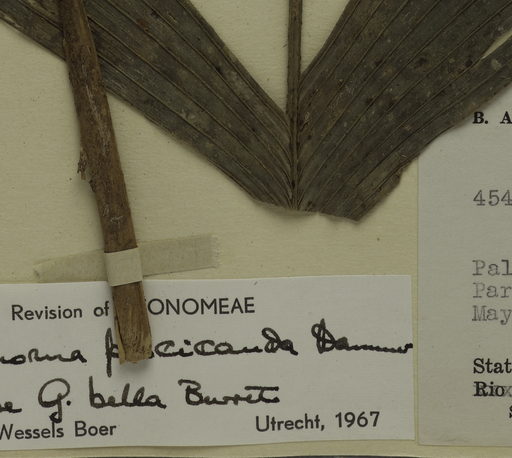 Revision of ONOMEAE
Dammer
G. bella Burret
Wessels Boer Utrecht, 1967
B. A
454
Pal
Par
May
Stat
Rio
S